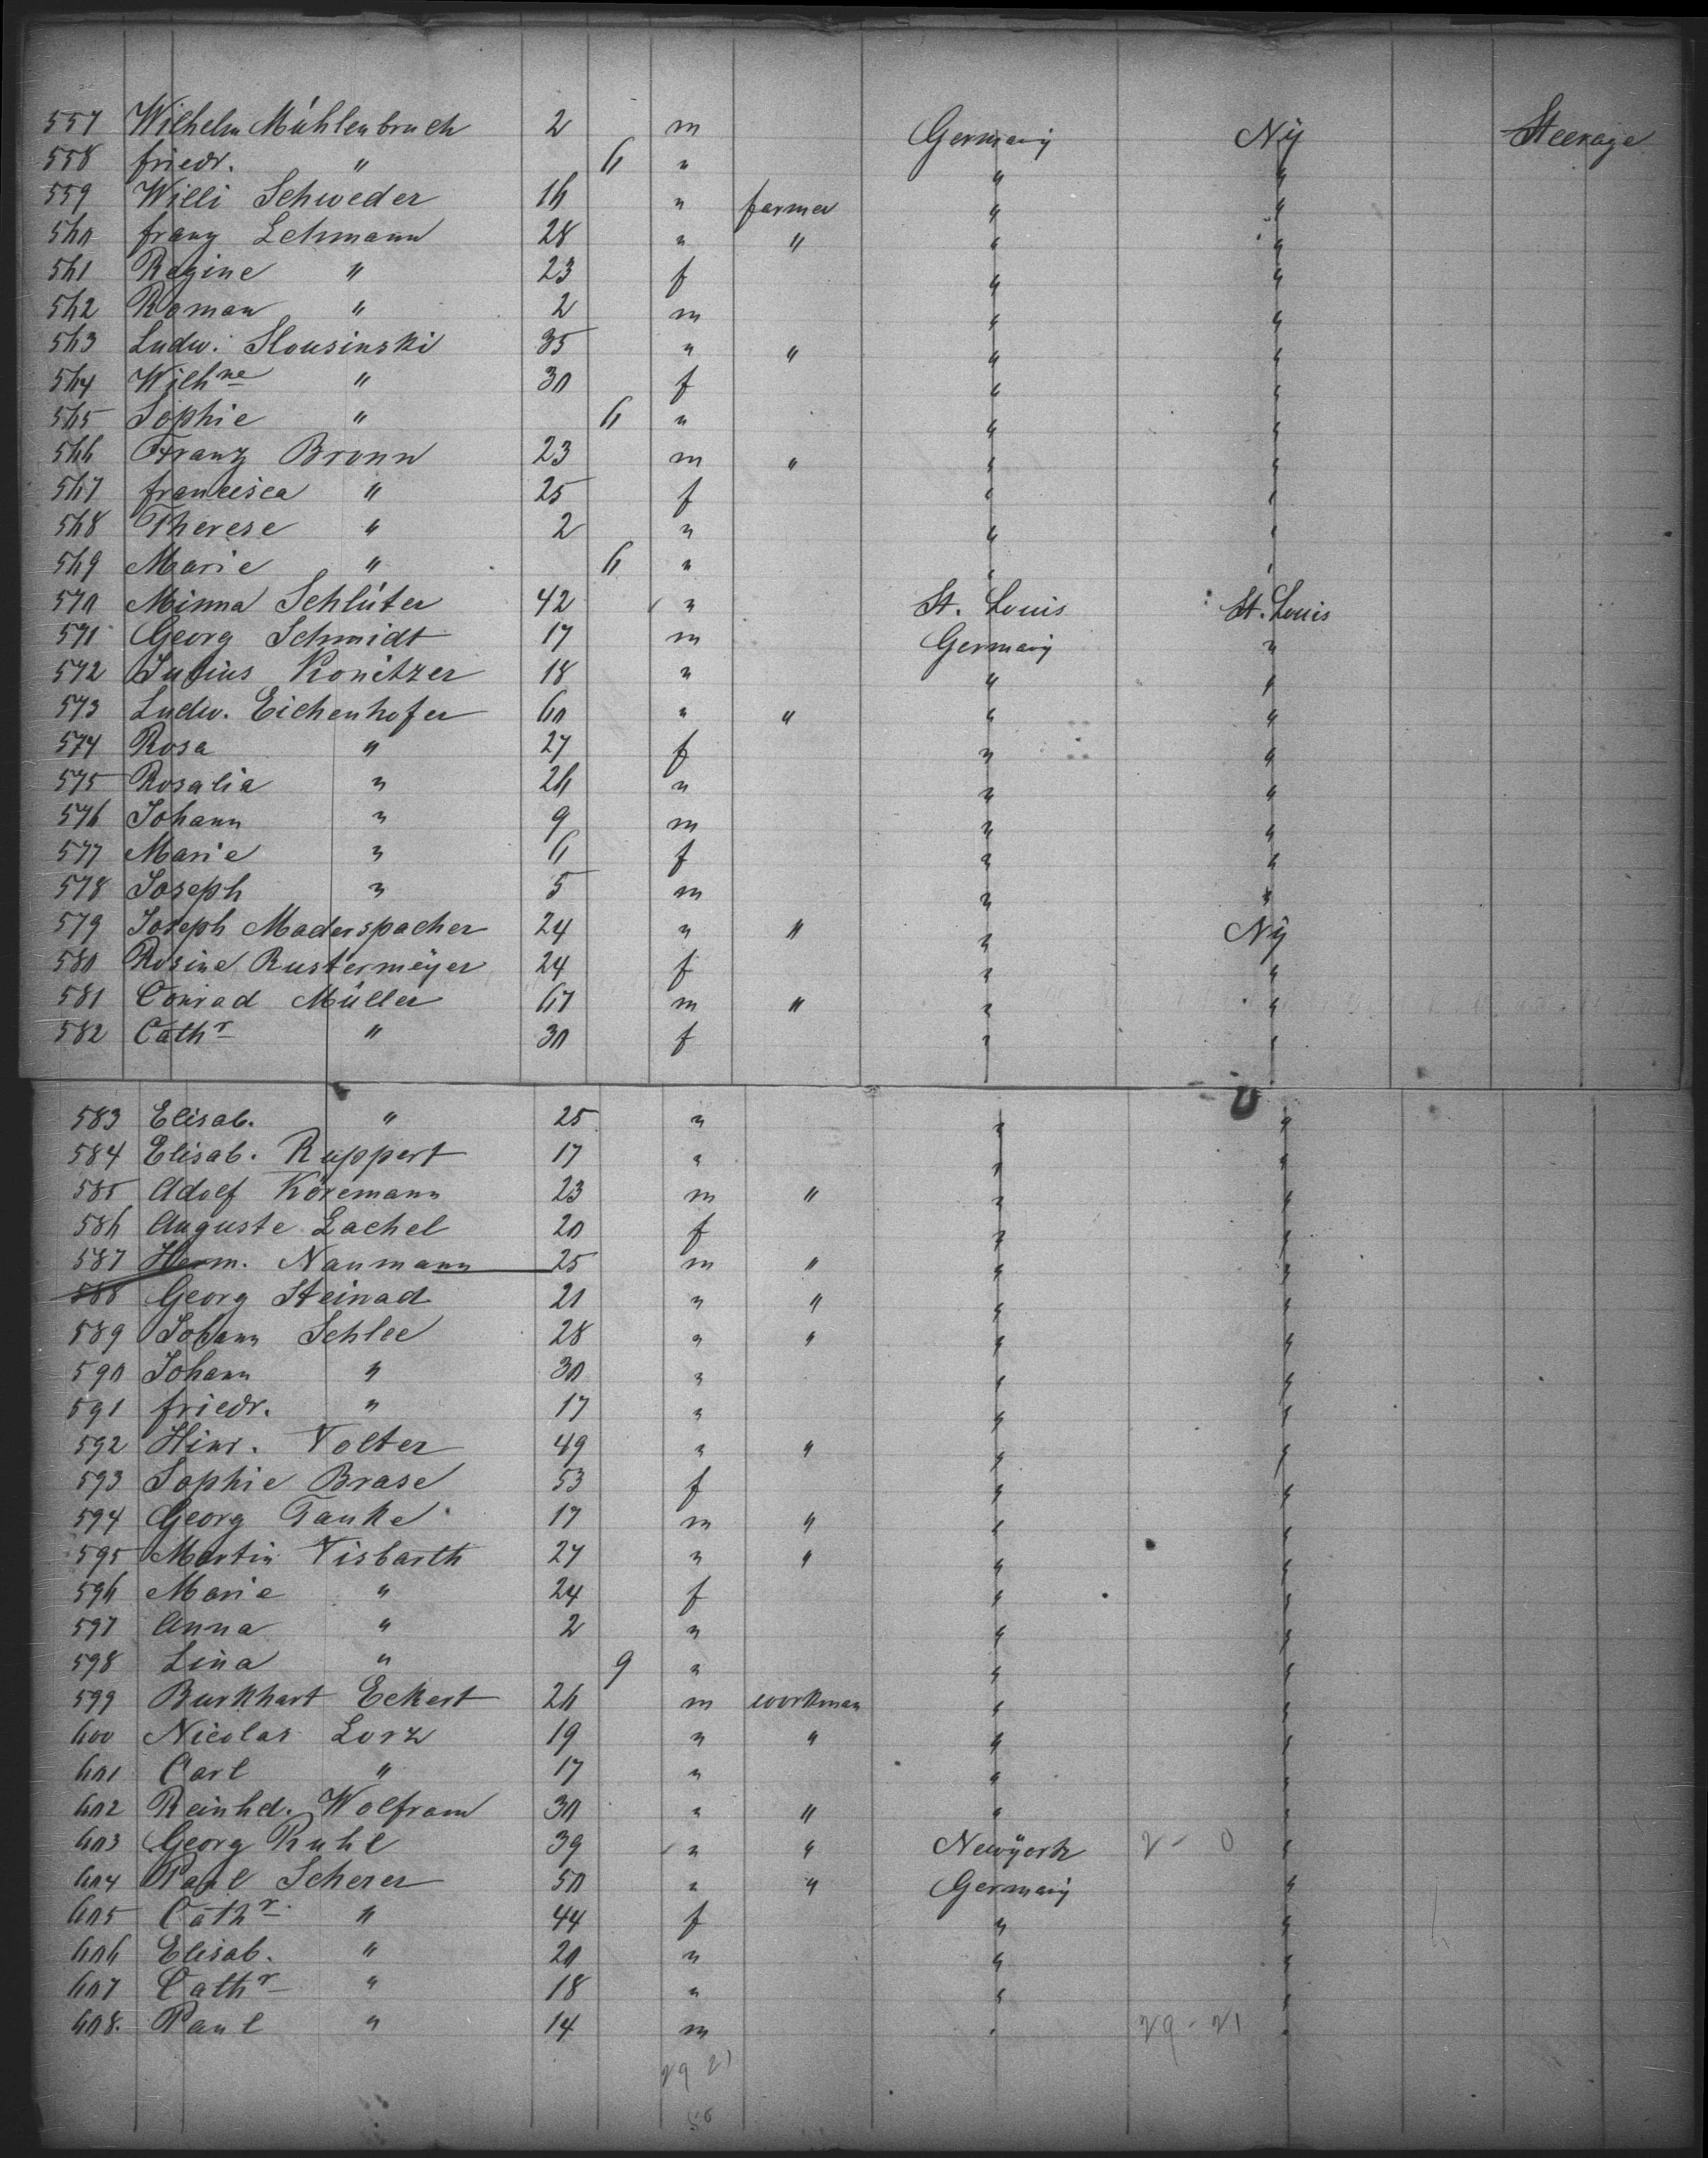 557 Wilhelm Mühlenbruch 2 m Germany Ny Steerage
558 friedr. " 6 " " "
559 Willi Schweder 16 " farmer " "
560 franz Lehmann 28 " " " "
561 Regine " 23 f " "
562 Roman " 2 m " "
563 Ludw. Slousinski 35 " " " "
564 Wilhne " 30 f " "
565 Sophie " 6 " " "
566 Franz Bronn 23 m " " "
567 francisca " 25 f " "
568 Therese " 2 " " "
569 Marie " 6 " " "
570 Minna Schlüter 42 " St. Louis St. Louis
571 Georg Schmidt 17 m Germany "
572 Julius Konitzer 18 " " "
573 Ludw. Eichenhofer 60 " " " "
574 Rosa " 27 f " "
575 Rosalia " 26 " " "
576 Johann " 9 m " "
577 Marie " 6 f " "
578 Joseph " 5 m " "
579 Joseph Maderspacher 24 " " " Ny
580 Rosine Rustermeyer 24 f " "
581 Conrad Müller 67 m " " "
582 Cathr " 30 f " "
583 Elisab. " 25 " " "
584 Elisab. Ruppert 17 " " "
585 Adolf Köremann 23 m " " "
586 Auguste Lachel 20 f " "
587 Herm. Naumann 25 m " " "
588 Georg Steinad 21 " " " "
589 Johann Schlee 28 " " " "
590 Johann " 30 " " "
591 friedr. " 17 " " "
592 Hinr. Tolter 49 " " " "
593 Sophie Brase 53 f " "
594 Georg Tanke 17 m " " "
595 Martin Visbarth 27 " " " "
596 Marie " 24 f " "
597 Anna " 2 " " "
598 Lina " 9 " " "
599 Burkhart Eckert 26 m workman " "
600 Nicolas Lorz 19 " " " "
601 Carl " 17 " " "
602 Reinhd. Wolfram 30 " " " "
603 Georg Ruhl 39 " " Newyork 2 - 0 "
604 Paul Scherer 50 " " Germany "
605 Cathr. " 44 f " "
606 Elisab. " 20 " " "
607 Cathr " 18 " " "
608. Paul " 14 m " 29 - 21 "
29 21
50